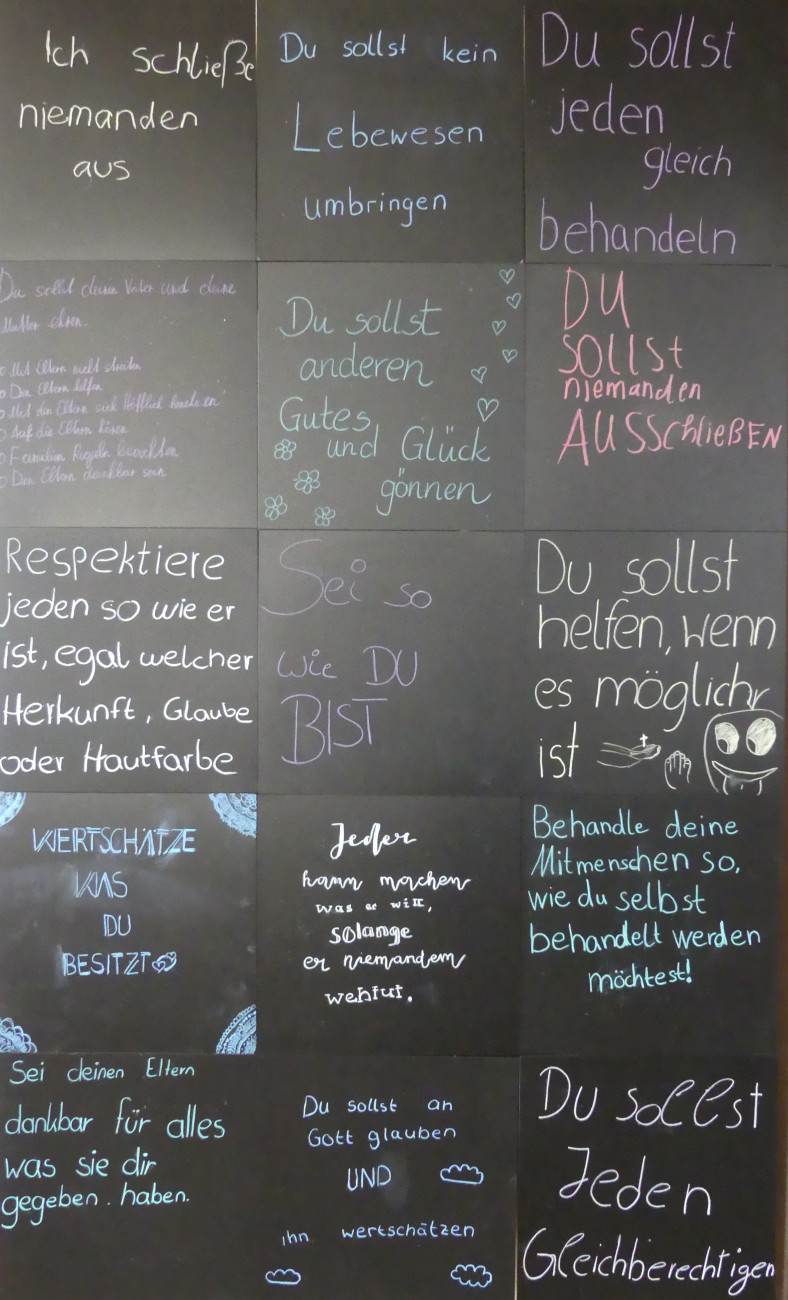 Ich schließe
niemanden
aus
Du sollst kein
Lebewesen
umbringen
Du sollst
jeden
gleich
behandeln
Du sollst deinen Vater und deine
Mutter ehren.
Mit Eltern nicht streiten
Den Eltern helfen
Mit den Eltern sich Höfflich
Auf die Eltern hören
Familien Regeln beachten
Den Eltern dankbar sein
Du sollst
anderen
Gutes
und Glück
gönnen
DU
SOLLST
niemanden
AUSSchließEN
Respektiere
jeden so wie er
ist, egal welcher
Herkunft, Glaube
oder Hautfarbe
Sei so
wie DU
BIST
Du sollst
helfen, wenn
es möglich
ist
WERTSCHÄTZE
WAS
DU
BESITZT
Jeder
kann machen
was er will,
solange
er niemandem
wehtut.
Behandle deine
Mitmenschen so,
wie du selbst
behandelt werden
möchtest!
Sei deinen Eltern
dankbar für alles
was sie dir
gegeben. haben.
Du sollst an
Gott glauben
UND
ihn wertschätzen
Du sollst
Jeden
Gleichberechtigen